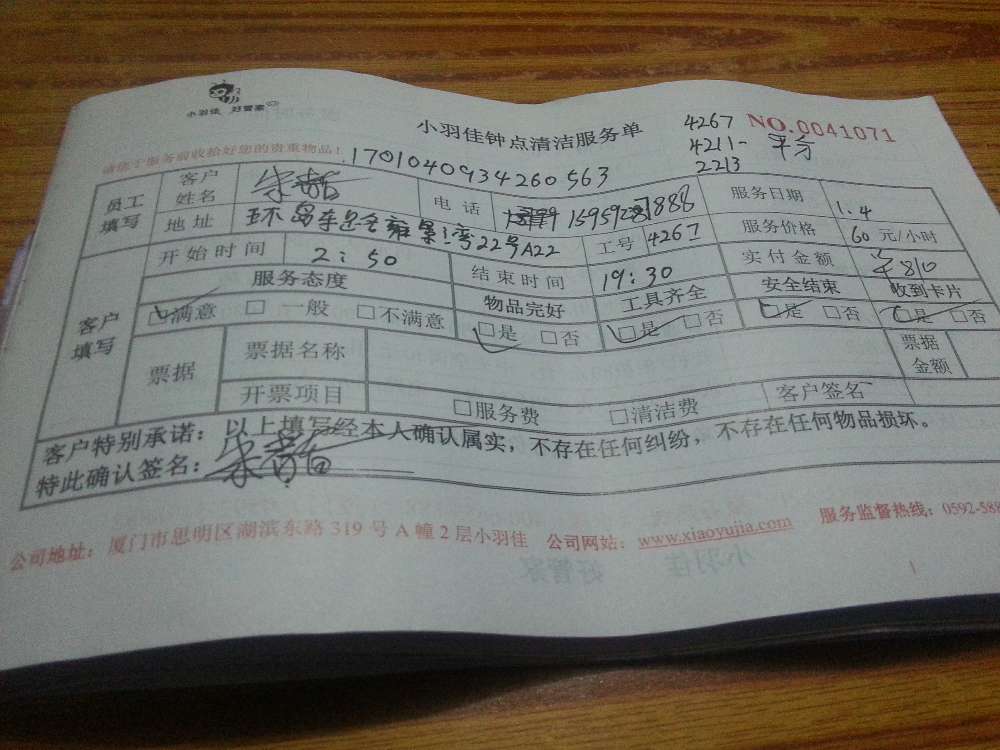 小羽佳 好管家
小羽佳钟点清洁服务单
4267
NO.0041071
4211- 平分
2213
请您于服务前收拾好您的贵重物品!
1701040934260563
员工填写
客户姓名
电话
服务日期 1.4
地址 22号A22
工号 4267
服务价格 60 元/小时
开始时间 2:50
结束时间 19:30
实付金额 810
客户填写
服务态度
物品完好
工具齐全
安全结束
收到卡片
□满意 □一般 □不满意
□是 □否
□是 □否
□是 □否
□是 □否
票据
票据名称
票据金额
开票项目
□服务费 □清洁费
客户签名
客户特别承诺:以上填写经本人确认属实,不存在任何纠纷,不存在任何物品损坏。
特此确认签名:
公司地址:厦门市思明区湖滨东路 319 号 A 幢 2 层小羽佳 公司网站:www.xiaoyujia.com 服务监督热线:0592-588